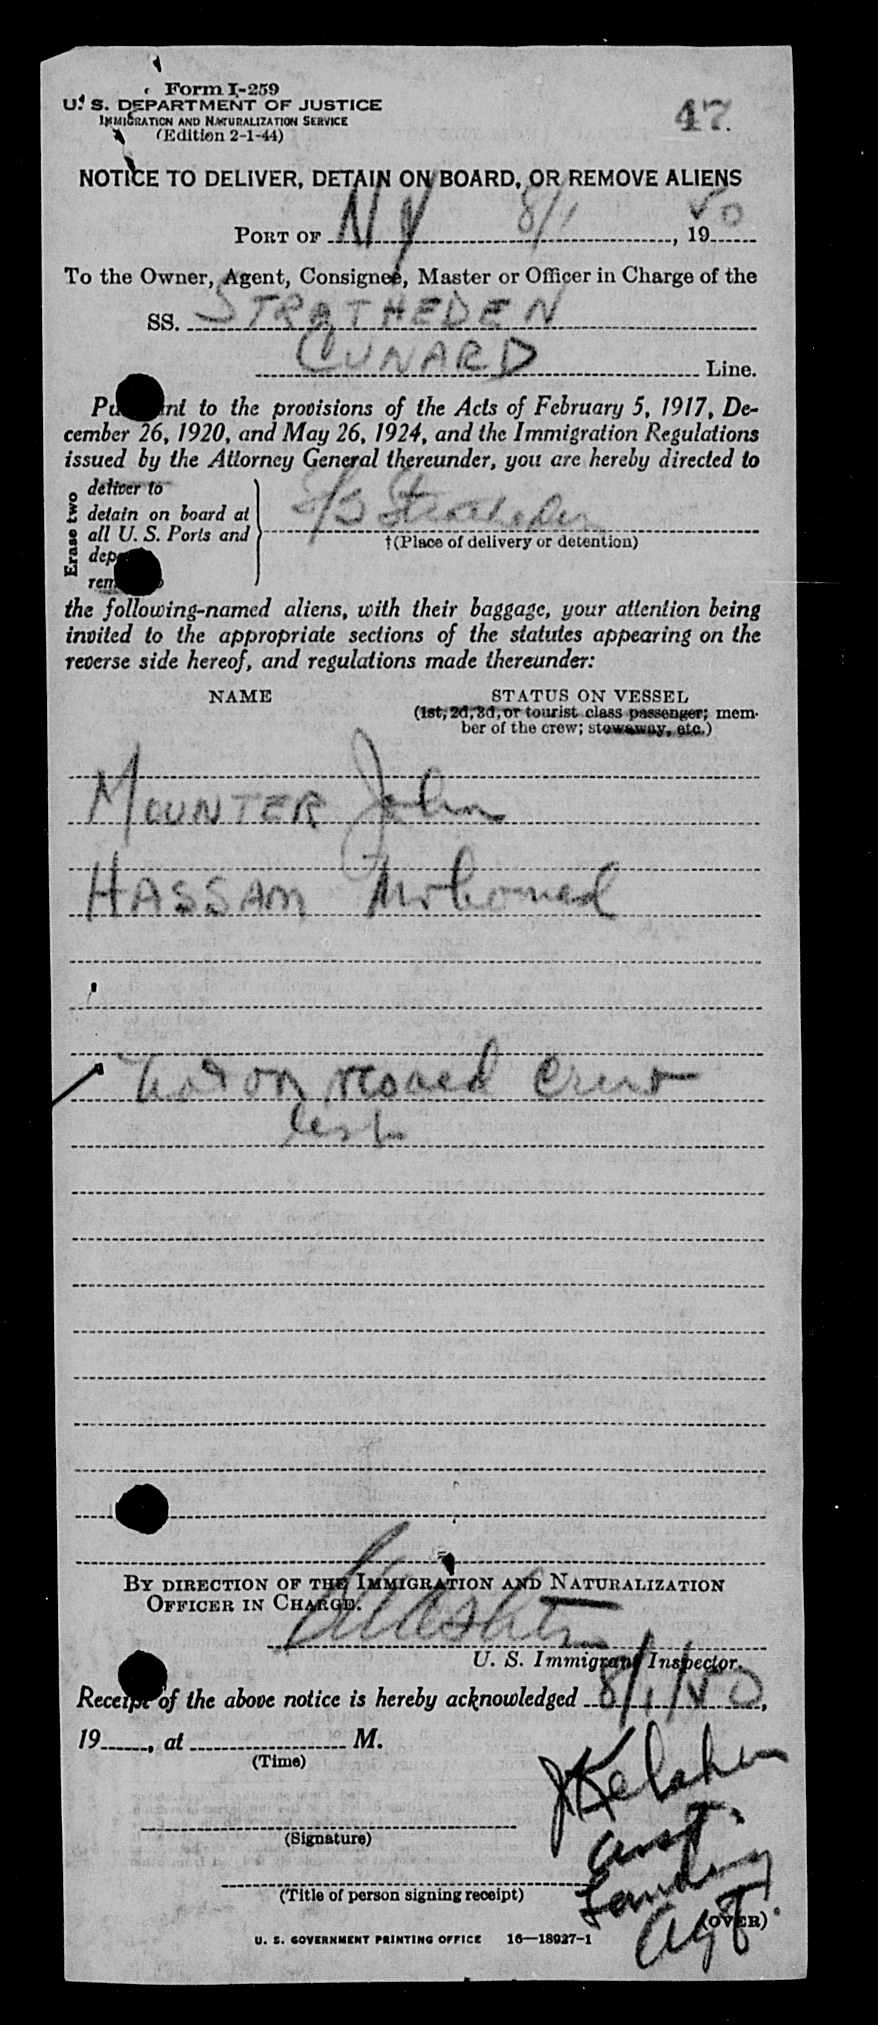 Form I-259
U. S. DEPARTMENT OF JUSTICE
IMMIGRATION AND NATURALIZATION SERVICE
(Edition 2-1-44)
47
NOTICE TO DELIVER, DETAIN ON BOARD, OR REMOVE ALIENS
PORT OF NY 8/1, 1950
To the Owner, Agent, Consignee, Master or Officer in Charge of the
SS. STRATHEDEN
CUNARD Line.
Pursuant to the provisions of the Acts of February 5, 1917, De-
cember 26, 1920, and May 26, 1924, and the Immigration Regulations
issued by the Attorney General thereunder, you are hereby directed to
Erase two
deliver to
detain on board at
all U. S. Ports and
S/S Stratheden
†(Place of delivery or detention)
the following-named aliens, with their baggage, your attention being
invited to the appropriate sections of the statutes appearing on the
reverse side hereof, and regulations made thereunder:
NAME STATUS ON VESSEL
(1st, 2d, 3d, or tourist class passenger; mem-
ber of the crew; stowaway, etc.)
MOUNTER John
HASSAM Mohomed
Not on visaed crew
list
BY DIRECTION OF THE IMMIGRATION AND NATURALIZATION
OFFICER IN CHARGE.
U. S. Immigrant Inspector.
Receipt of the above notice is hereby acknowledged 8/1/50,
19___, at ___ M.
(Time)
J Kelsher
(Signature)
Asst.
Landing
(Title of person signing receipt)
Agt.
(OVER)
U. S. GOVERNMENT PRINTING OFFICE 16—18927-1